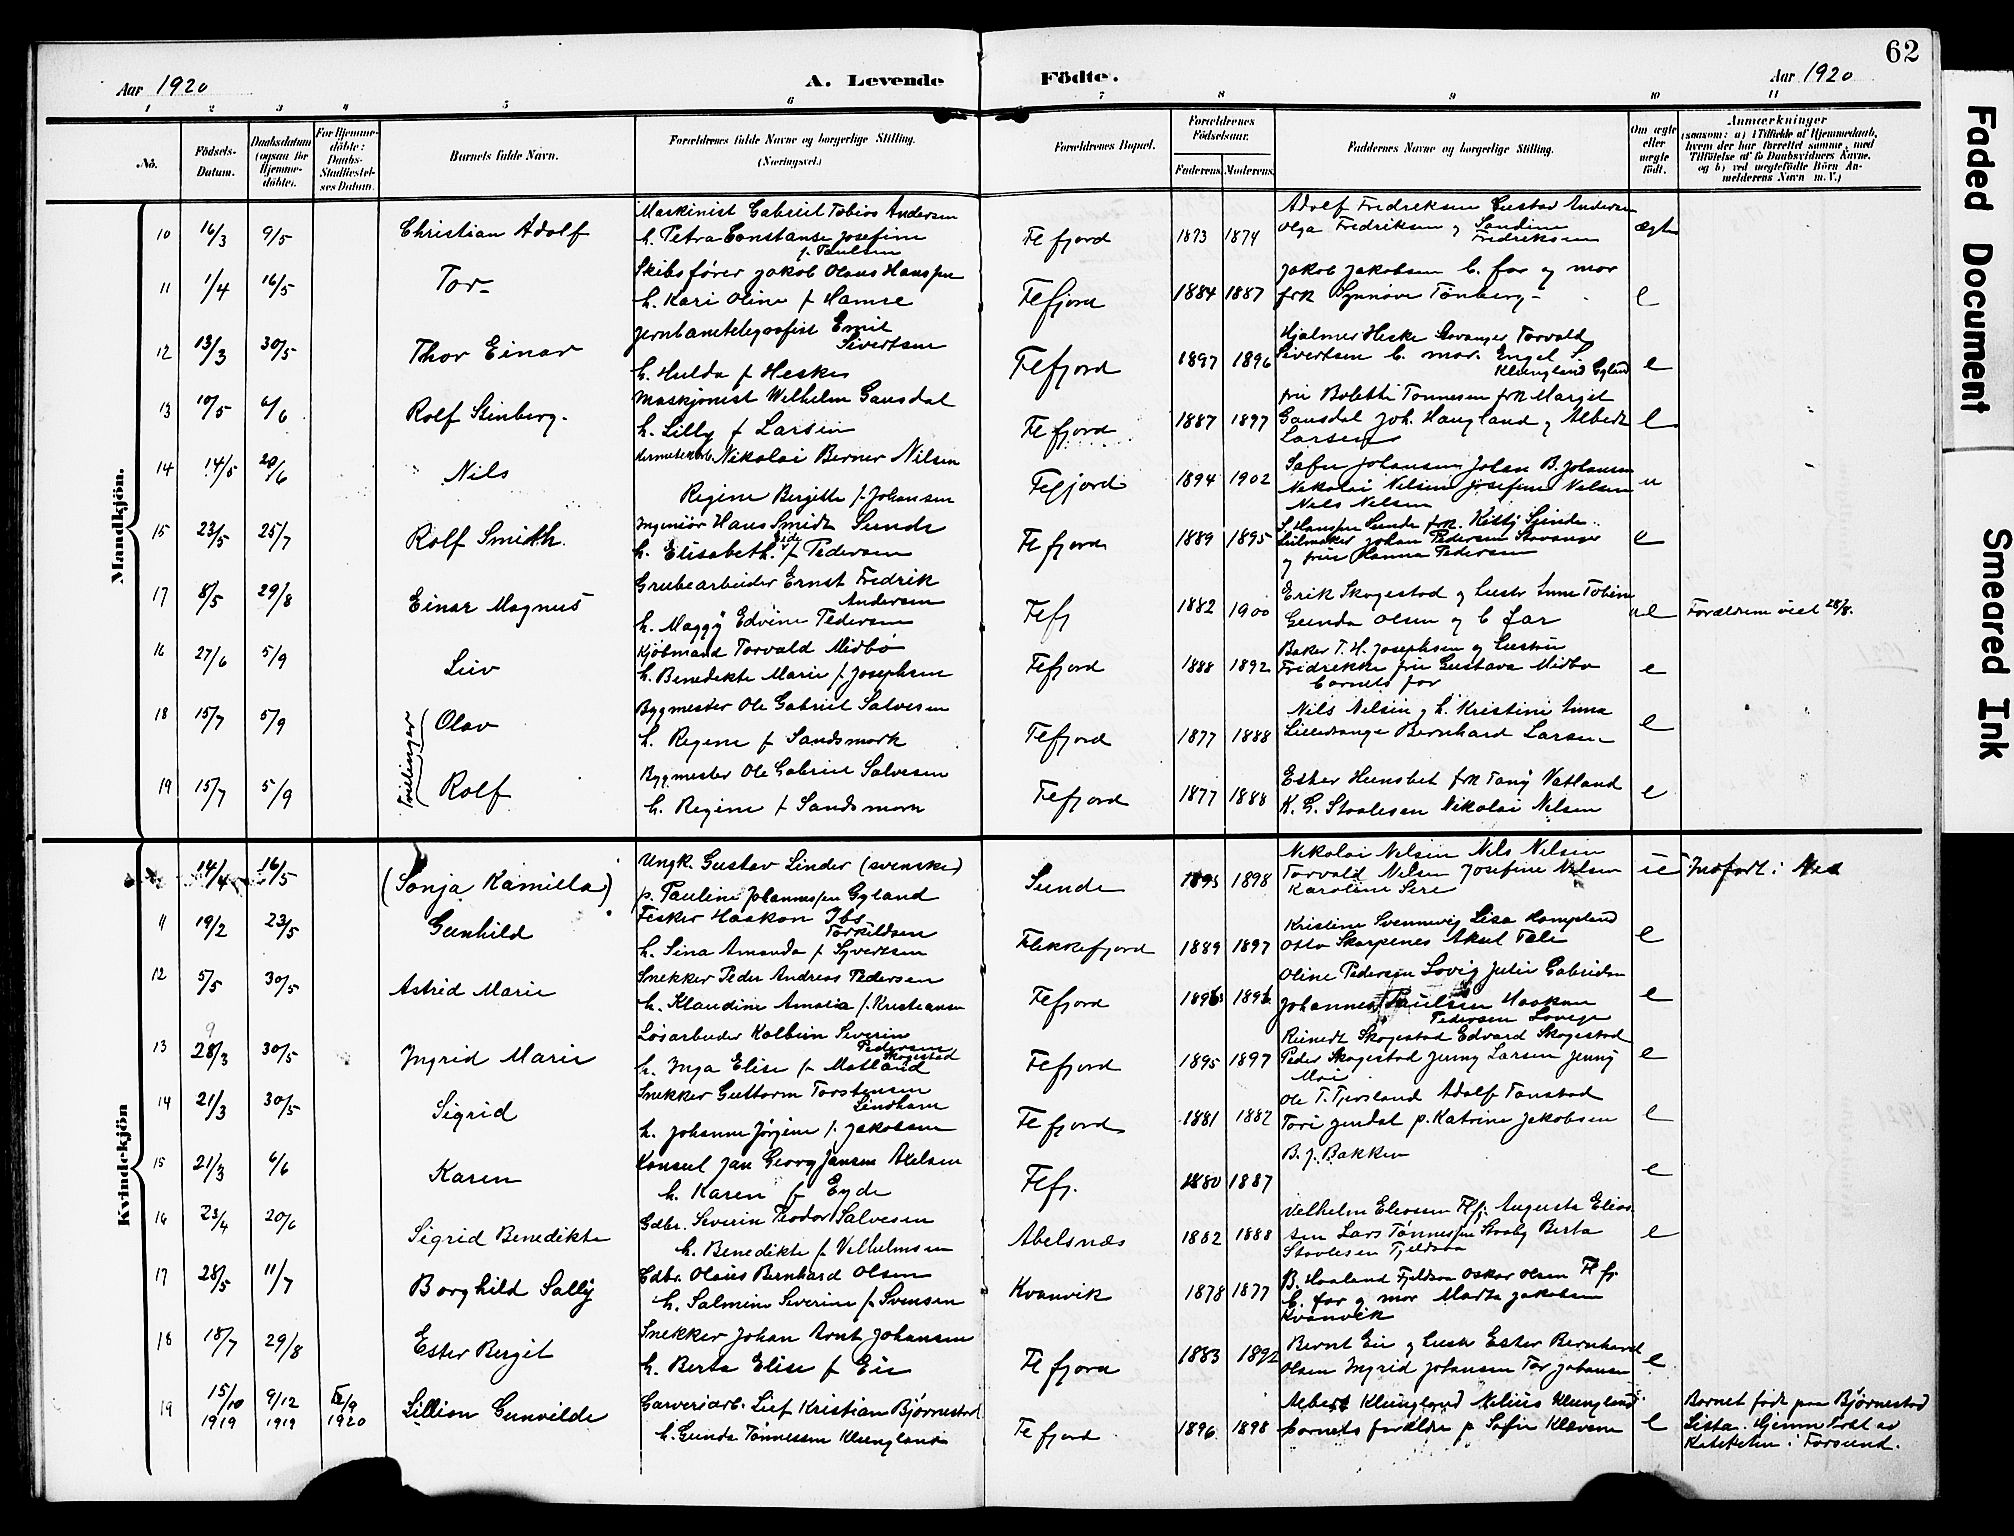 62
Aar 1920
A. Levende
Födte.
Aar 1920
1 2 3 4 5 6 7 8 9 10 11
No.
Födsels-
Datum.
Daabsdatum
(ogsaa for
Hjemme-
döbte).
For Hjemme-
döbte:
Daabs-
Stadfæstel-
ses Datum.
Barnets fulde Navn.
Forældrenes fulde Navne og borgerlige Stilling.
(Næringsvei.)
Forældrenes Bopæl.
Forældrenes
Födselsaar.
Faderens. Moderens.
Faddernes Navne og borgerlige Stilling.
Om ægte
eller
uægte
födt.
Anmærkninger
(saasom: a) i Tilfælde af Hjemmedaab,
hvem der har forrettet samme, med
Tilföielse af to Daabsvidners Navne,
og b) ved uægtefödte Börn An-
melderens Navn m. V.)
Mandkjön.
10 16/3 9/5 Christian Adolf
Maskinist Gabriel Tobias Andersen
h. Petra Constanse Josefine
f. Paulsen
Flefjord 1873 1874
Adolf Fredriksen Gustav Andersen
Olga Fredriksen og Sandine
Fredriksen
ægte
11 1/4 16/5 Tor
Skibsfører Jakob Olaus Hanssen
h. Kari Oline f Hamre
Flefjord 1884 1887
Jakob Jakobsen b. far og mor
frk Synnøve Tønberg
e
12 13/3 30/5 Thor Einar
Jernbanetelegrafist Emil
Sivertsen
h. Hulda f Heskes
Flefjord 1897 1896
Hjalmer Heske Stavanger Torvald
Sivertsen b. mor. Engel S.
Klungland Gyland
e
13 10/5 6/6 Rolf Stinberg.
Maskjonist Wilhelm Gausdal
h. Lilly f Larsen
Flefjord 1887 1897
fru Bolette Tønnesen frk Margit
Gausdal Joh. Haugland og Albert
Larsen
e
14 14/5 20/6 Nils
Nikolai Berner Nilsen
Regine Bergitte f. Johansen
Flefjord 1894 1902
Sofie Johansen Johan B. Johansen
Nikolai Nilsen Josefine Nilsen
Nils Nilsen
u
15 23/5 25/7 Rolf Smith.
Ingeniør Hans Smidt Sunde
h. Elisabeth f Pedersen
Flefjord 1889 1895
S. Hanssen Sunde frk. Kitty Sunde
Seilmaker Johan Pedersen Stavanger
og frue Hanna Pedersen
e
17 8/5 29/8 Einar Magnus
Grubearbeider Ernst Fredrik
Andersen
h. Maggy Edvine Pedersen
Flefj 1882 1900
Erik Skogestad og hustr Anne Tobine
Gunda Olsen og b far
ue Forældrene viet 28/8.
16 27/6 5/9 Leiv
Kjøbmand Torvald Midbø
h. Benedikte Marie f Josephsen
Flefjord 1888 1892
Baker T. H. Josephsen og hustru
Fredrikke fru Gustava Midbø
barnets far
e
Tvillinger
18 15/7 5/9 Olav
Bygmester Ole Gabriel Salvesen
h. Regine f Sandsmork
Flefjord 1877 1888
Nils Nilsen og h. Kristine Anna
Lilledrange Bernhard Larsen
e
19 15/7 5/9 Rolf
Bygmester Ole Gabriel Salvesen
h. Regine f Sandsmork
Flefjord 1877 1888
Ester Hunsbet frk Tany Vatland
K. G. Staalesen Nikolai Nilsen
e
Kvindekjön
14/4 16/5 (Sonja Kamilla)
Ungk. Gustav Linder (svenske)
p. Pauline Johannessen Gyland
Sunde 1895 1898
Nikolai Nilsen Nils Nilsen
Torvald Nilsen Josefine Nilsen
Karoline Sere
ue Indført: Ned
11 19/2 23/5 Gunhild
Fisker Haakon Ibs.
Torkildsen
h. Sina Amanda f Syvertsen
Flekkefjord 1889 1897
Kristine Svennevig Lisa Kongslund
Otto Skarpenes Aksel Tele
e
12 5/5 30/5 Astrid Marie
Snekker Peder Andreas Pedersen
h. Klaudine Amalia f. Kristiansen
Flefjord 1896 1896
Oline Pedersen Lovig Julie Gabrielsen
Johannes Paulsen Haakon
Pedersen Lovige
e
13 28/3 30/5 Ingrid Marie
Løsarbeider Kolbein Severin
Pedersen
Skogestad
h. Inga Elise f Motland
Flefjord 1895 1897
Reinert Skogestad Edvard Skogestad
Peder Skogestad Jenny Larsen Jenny
Moi
e
14 21/3 30/5 Sigrid
Snekker Guttorm Torstensen
Lindham
h. Johanne Jørgine f. Jakobsen
Flefjord 1881 1882
Ole T. Tjersland Adolf Tonstad
Tori Jendal p. Katrine Jakobsen
e
15 21/3 6/6 Karen
Konsul Jan Georg Jansen Axelsen
h. Karen f Eyde
Flefj. 1880 1887
B. J. Bakken
e
16 23/4 20/6 Sigrid Benedikte
Gdbr. Severin Teodor Salvesen
h. Benedikte f Velhelmsen
Abelsnæs 1882 1888
Velhelm Eliasen Flfj. Augusta Elias
sen Lars Tønnessen Staaly Berta
Stavlesen Fjeldsaa
e
17 28/5 11/7 Borghild Sally
Gdbr. Olaus Bernhard Olsen
h. Salmine Severine f Svensen
Kvanvik 1878 1877
B. Haaland Fjeldsaa Oskar Olsen Flfj.
b. far og mor Marta Jakobsen
Kvanvik
18 18/7 29/8 Ester Bergit
Snekker Johan Arnt Johansen
h. Berta Elise f Eie
Flefjord 1883 1892
Bernt Eie og hustr Ester Bernhard
Olsen Ingrid Johansen Tor Johansen
e
19 15/10 1919 9/12 1919 12/9 1920 Lillian Gunvilde
Garveriarb. Lief Kristian Bjørnestad
h. Gunda Tønnessen Klungland
Flefjord 1896 1898
Albert Klungland Nelius Klungland
barnets forældre p Sofie Klevene
e
Barnet født paa Bjørnestad
Lista. Hjemmedøbt av
Kateketen i Farsund.
Faded Document
Smeared Ink